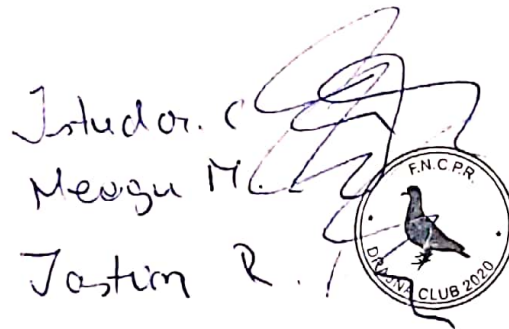 Istudor. C
Neagu M.
Tastim R.
F.N.C.P.R.
DRAJNA CLUB 2020